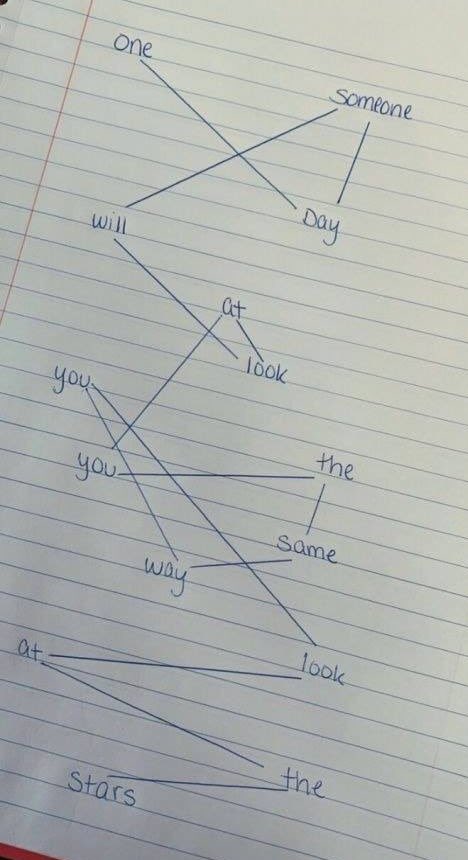 One
Someone
Day
will
at
look
you
you
the
same
way
look
at
the
Stars